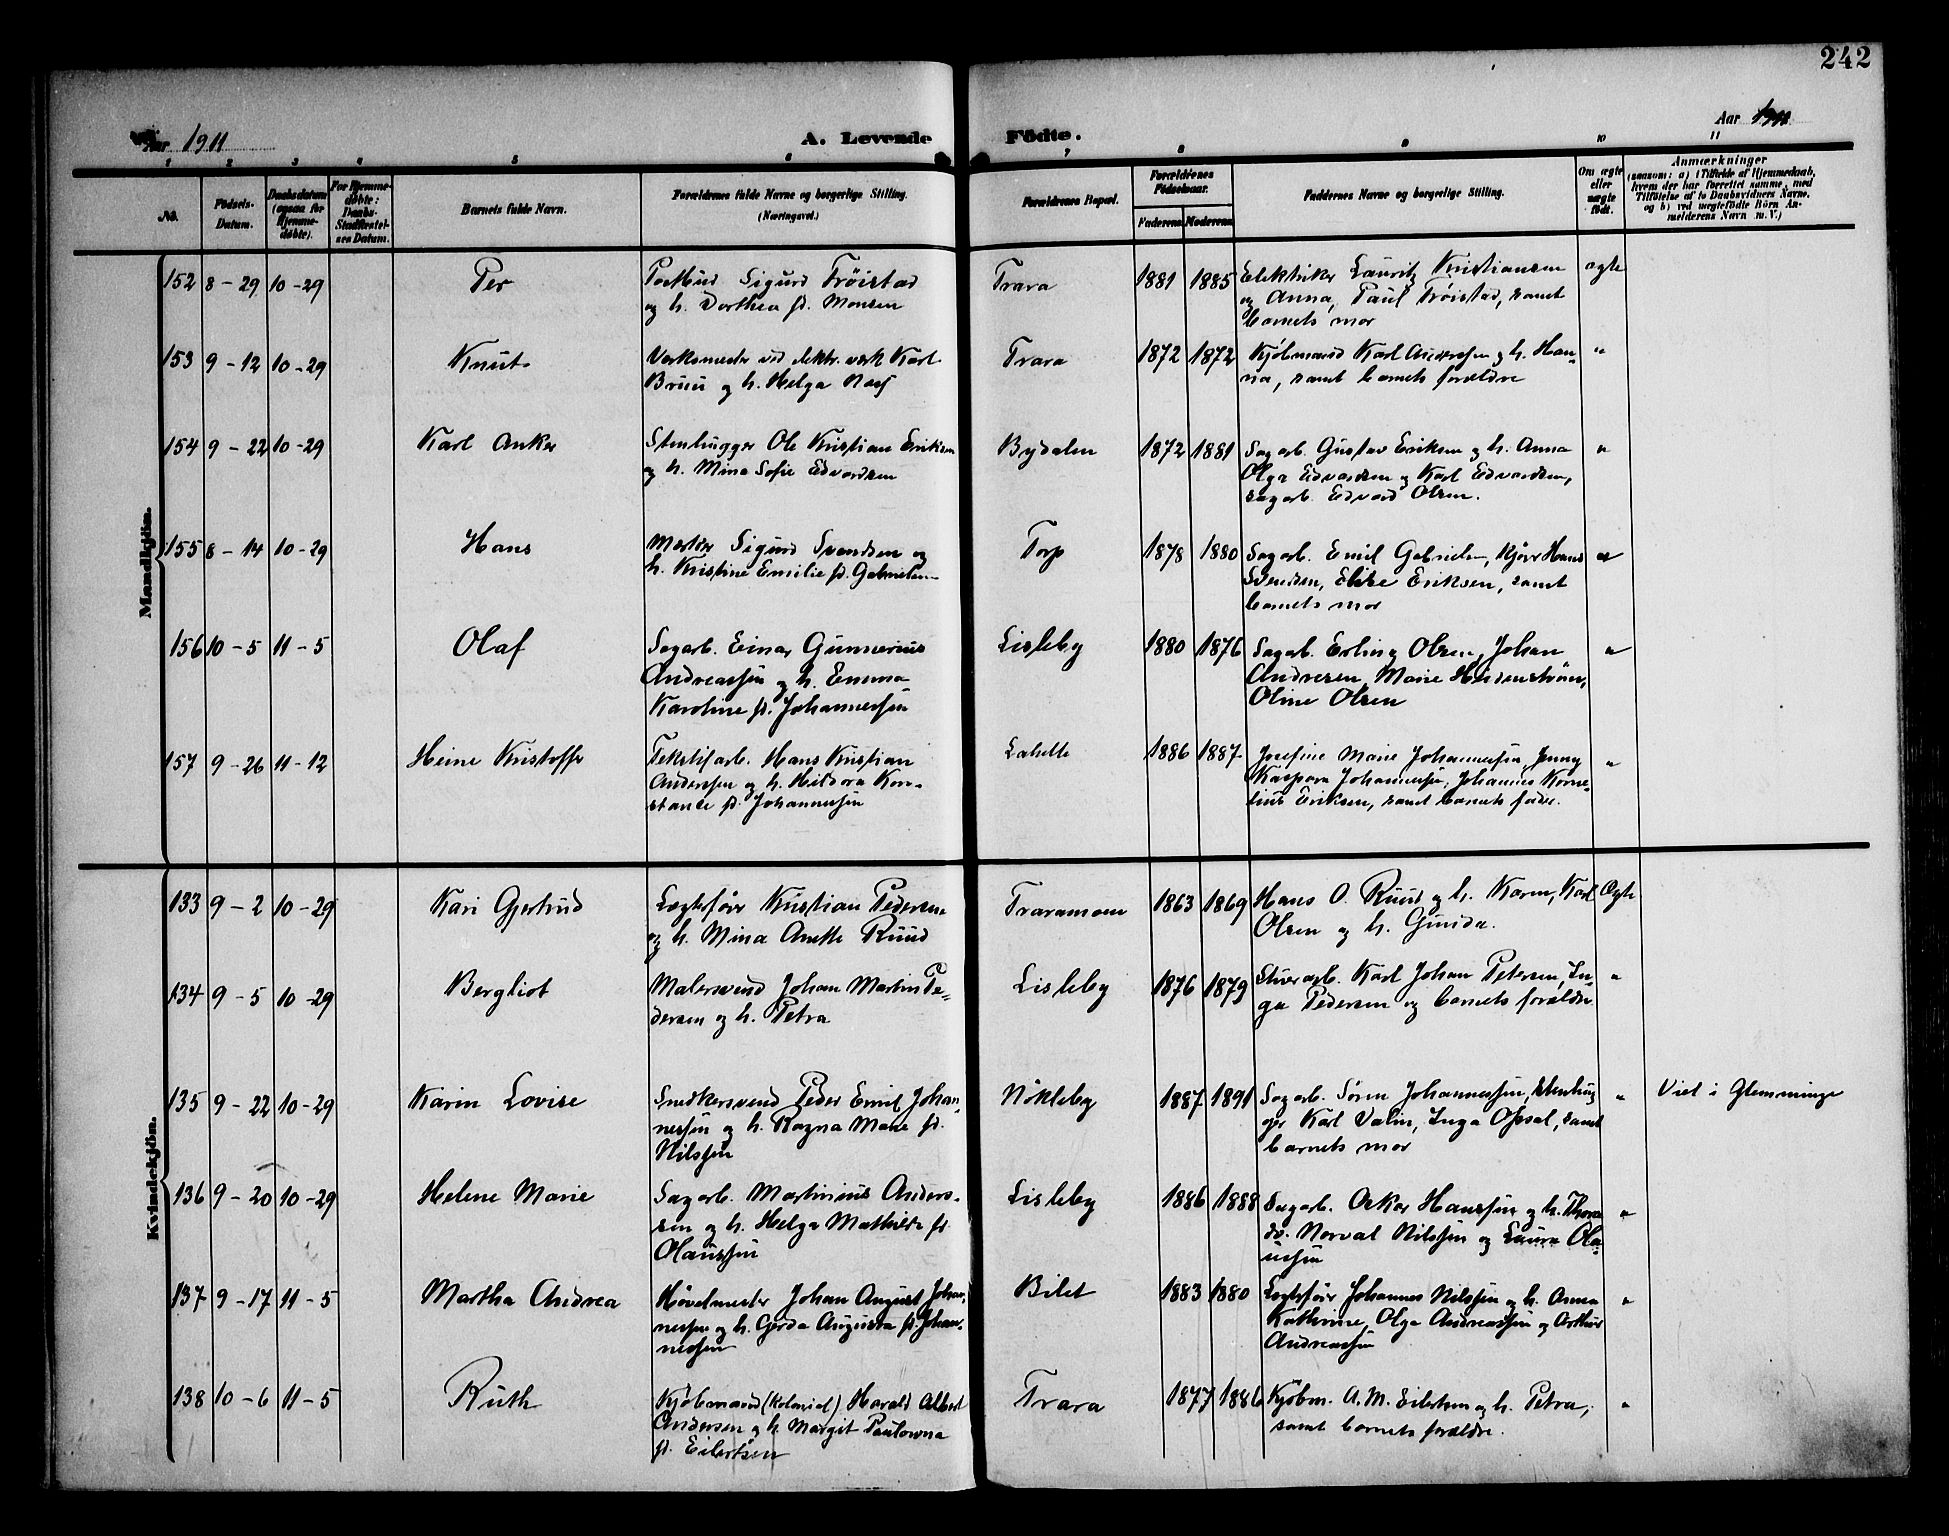 242
Aar 1911
A. Levende Födte.
Aar 1911
1 2 3 4 5 6 7 8 9 10 11
No.
Födsels-
Datum.
Daabsdatum
(ogsaa for
Hjemme-
döbte).
For Hjemme-
döbte:
Daabs-
Stadfæstel-
ses Datum.
Barnets fulde Navn.
Forældrenes fulde Navne og borgerlige Stilling.
(Næringsvei.)
Forældrenes Bopæl.
Forældrenes
Födselsaar.
Faderens Moderens
Faddernes Navne og borgerlige Stilling.
Om ægte
eller
uægte
födt.
Anmærkninger
(saasom: a) i Tilfælde af Hjemmedaab,
hvem der har forrettet samme, med
Tilföielse af to Daabsvidners Navne,
og b) ved uægtefödte Börn An-
melderens Navn m. V.)
Mandkjön.
152 8-29 10-29 Per
Postbud Sigurd Tröistad
og h. Dorthea f. Monsen
Trara 1881 1885
Elektriker Lauritz Kristiansen
og Anna, Paul Tröistad, samt
barnets mor
ægte
153 9-12 10-29 Knut
Verksmester ved elektr. verk Karl
Bruu og h. Helga Næs
Trara 1872 1872
Kjøbmand Karl Andersen og h. Han-
na, samt barnets forældre
"
154 9-22 10-29 Karl Anker
Stenhugger Ole Kristian Eriksen
og h. Mina Sofie Edvardsen
Bydalen 1872 1881
Sagarb. Gustav Eriksen og h. Anna
Olga Edvardsen og Karl Edvardsen,
sagarb. Edvard Olsen.
"
155 8-14 10-29 Hans
Sigurd Svendsen og
h. Kristine Emilie f. Gabrielsen
Torp 1878 1880
Sagarb. Emil Gabrielsen, Hans
Svendsen, Elise Eriksen, samt
barnets mor
"
156 10-5 11-5 Olaf
Sagarb. Einar Gunnerius
Andreassen og h. Emma
Karoline f. Johannessen
Lisleby 1880 1876
Sagarb. Erling Olsen, Johan
Andresen, Marie Heidenstrøm,
Oline Olsen
"
157 9-26 11-12 Heine Kristoffer
Tekstilarb. Hans Kristian
Anderssen og h. Hildora Kon-
stance f. Johannessen
Labella 1886 1887
Josefine Marie Johannessen, Jenny
Kaspara Johannessen, Johannes Korne-
lius Eriksen, samt barnets fader.
"
Kvindekjön.
133 9-2 10-29 Kari Gjertrud
Lægtefører Kristian Pedersen
og h. Mina Anette Ruud
Traramoen 1863 1869
Hans O. Ruud og h. Karen, Karl
Olsen og h. Gunda.
Ægte
134 9-5 10-29 Bergliot
Malersvend Johan Martin Pe-
dersen og h. Petra
Lisleby 1876 1879
Stuerarb. Karl Johan Petersen, In-
ga Pedersen og barnets forældre
"
135 9-22 10-29 Karin Lovise
Snedkersvend Peder Emil Johan-
nessen og h. Ragna Marie f.
Nilssen
Nökleby 1887 1891
Sagarb. Sören Johannessen, stenhug
ger Karl Valin, Inga Opsal, samt
barnets mor
"
Viet i Glemminge
136 9-20 10-29 Helene Marie
Sagarb. Martinius Anders-
sen og h. Helga Mathilde f.
Olaussen
Lisleby 1886 1888
Sagarb. Oskar Hanssen og h. Thora
do. Norval Nilssen og Laura Ola-
ussen
"
137 9-17 11-5 Martha Andrea
Høvelmester Johan August Johan-
nessen og h. Gerda Augusta f. Johan-
nessen
Bilet 1883 1880
Lægtefører Johannes Nilssen og h. Anna
Kathrine, Olga Andreassen og Arthur
Andreassen
"
138 10-6 11-5 Ruth
Kjøbmand (Kolonial) Harald Albert
Andersen og h. Margit Paulowna
f. Eilertsen
Trara 1877 1886
Kjøbm. A. M. Eilertsen og h. Petra,
samt barnets forældre.
"